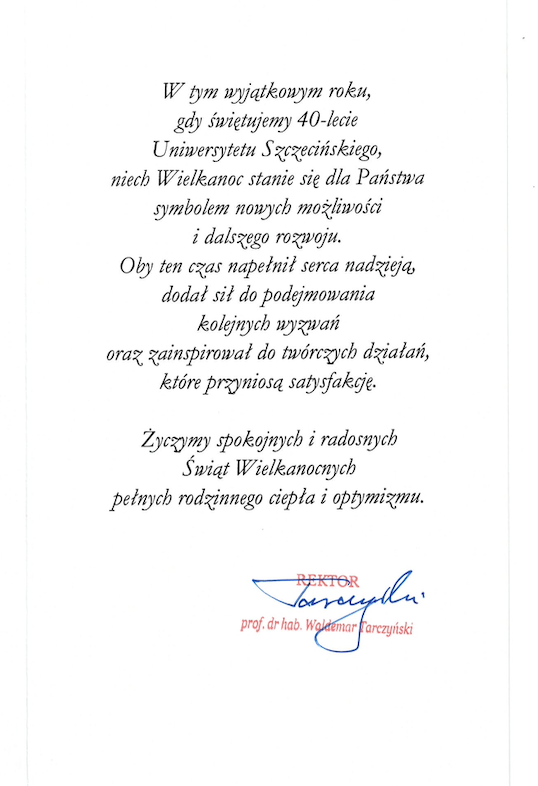 W tym wyjątkowym roku,
gdy świętujemy 40-lecie
Uniwersytetu Szczecińskiego,
niech Wielkanoc stanie się dla Państwa
symbolem nowych możliwości
i dalszego rozwoju.
Oby ten czas napełnił serca nadzieją,
dodał sił do podejmowania
kolejnych wyzwań
oraz zainspirował do twórczych działań,
które przyniosą satysfakcję.
Życzymy spokojnych i radosnych
Świąt Wielkanocnych
pełnych rodzinnego ciepła i optymizmu.
REKTOR
Tarczyński
prof. dr hab. Waldemar Tarczyński